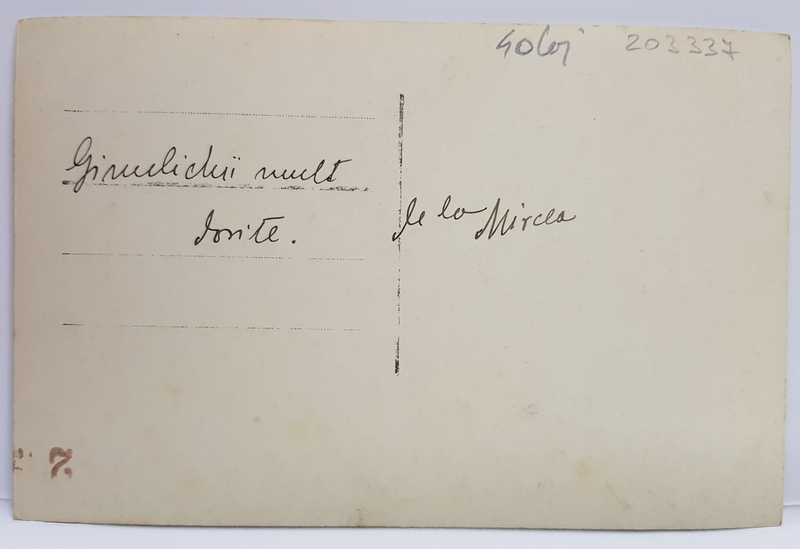 40lei 203337
Gimelichii mult
dorite.
de la Mircea
7.